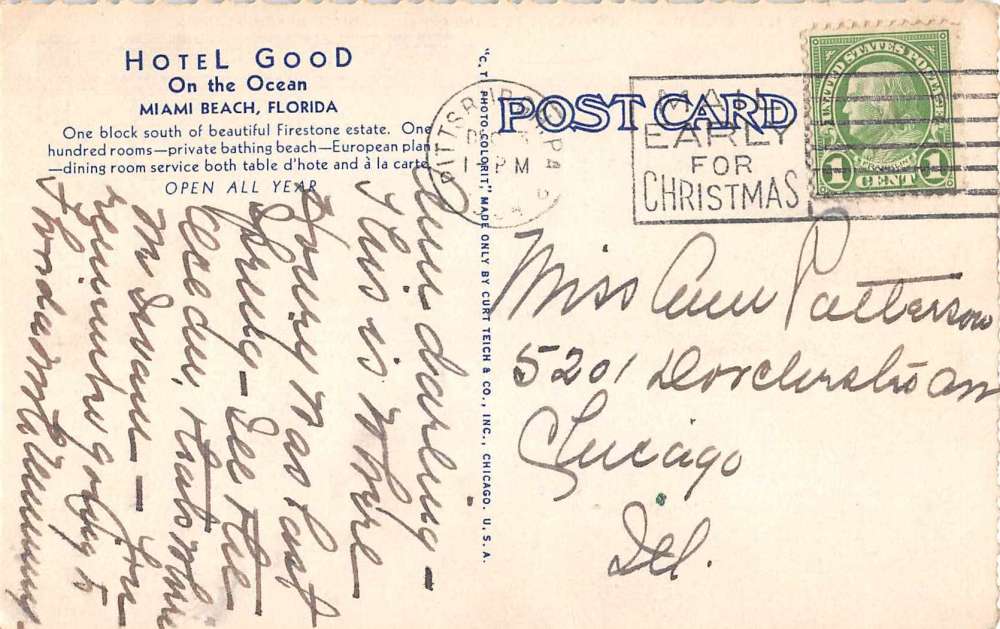 HOTEL GOOD
On the Ocean
MIAMI BEACH, FLORIDA
One block south of beautiful Firestone estate. One
hundred rooms—private bathing beach—European plan
—dining room service both table d'hote and à la carte.
OPEN ALL YEAR
Ann darling -
This is where
Sonny was last
Spring - See the
beginning going to
"C. T. PHOTO-COLORIT," MADE ONLY BY CURT TEICH & CO., INC., CHICAGO, U. S. A.
POST CARD
PITTSBURGH PA
DEC
1 PM
MAIL
EARLY
FOR
CHRISTMAS
UNITED STATES POSTAGE
FRANKLIN
1 CENT 1
Miss Ann Patterson
5201 Dorchester Ave
Chicago
Ill.